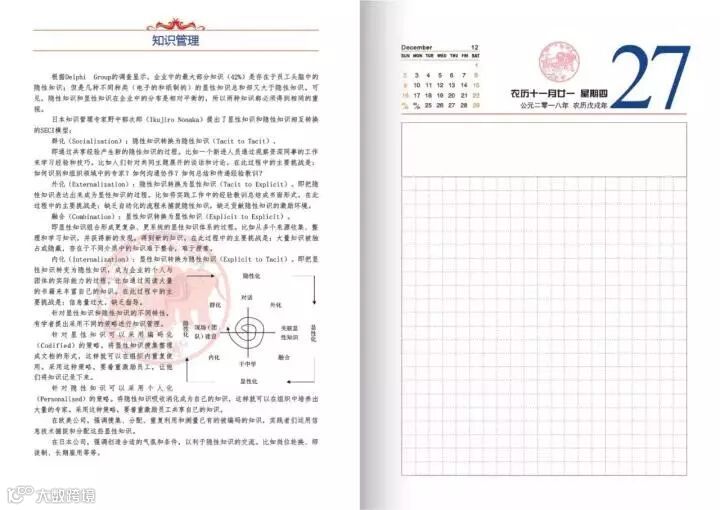 知识管理
根据Delphi Group的调查显示，企业中的最大部分知识（42%）是存在于员工头脑中的
隐性知识；但是几种不同种类（电子的和纸制的）显性知识总和却又大于隐性知识。可
见，隐性知识和显性知识在企业中的分布是相对平衡的，所以两种知识都必须得到相同的重
视。
日本知识管理专家野中郁次郎（Ikujiro Nonaka）提出了显性知识和隐性知识相互转换
的SECI模型：
群化（Socialisation）：隐性知识转换为隐性知识（Tacit to Tacit）。
即通过共享经验产生新的隐性知识的过程。比如一个新进人员通过观察资深同事的工作
来学习经验和技巧。比如人们针对共同主题展开的谈话和讨论。在此过程中的主要挑战是：
如何识别和组织领域中的专家？如何沟通协作？如何总结和传递经验教训？
外化（Externalisation）：隐性知识转换为显性知识（Tacit to Explicit）。即把隐
性知识表达出来成为显性知识的过程。比如将实践工作中的经验教训总结成书面形式。在此
过程中的主要挑战是：缺乏自动化的流程来捕捉隐性知识，缺乏贡献隐性知识的激励环境。
融合（Combination）：显性知识转换为显性知识（Explicit to Explicit）。
即显性知识组合形成更复杂、更系统的显性知识体系的过程。比如从多个来源收集、整
理和学习知识，并获得新的发现，得到新的知识。在此过程中的主要挑战是：大量知识被独
占或隐藏，存在于不同介质中的知识难于整合，难于搜索。
内化（Internalisation）：显性知识转换为隐性知识（Explicit to Tacit）。即把显
性知识转变为隐性知识，成为企业的个人与
团体的实际能力的过程。比如通过阅读大量
的书籍来丰富自己的知识。在此过程中的主
要挑战是：信息量过大、缺乏指导。
针对显性知识和隐性知识的不同特性，
有学者提出采用不同的策略进行知识管理。
针对显性知识可以采用编码化
（Codified）的策略。将显性知识搜集整理
成文档的形式，这样就可以在组织内重复使
用。采用这种策略，要着重激励员工，让他
们将知识记录下来。
针对隐性知识可以采用个人化
（Personalised）的策略。将隐性知识吸收消化成为自己的知识，这样就可以在组织中培养出
大量的专家。采用这种策略，要着重激励员工共享自己的知识。
在欧美公司，强调搜集、分配、重复利用和测量已有的被编码的知识，实践者们运用信
息技术捕捉和分配这些显性知识。
在日本公司，强调创造合适的气氛和条件，以利于隐性知识的交流，比如岗位轮换、师
徒制、长期雇用等等。
隐性化
对话
群化
外化
隐性化
现场（团
队）建设
关联显
性知识
显性化
内化
融合
干中学
显性化
大数跨境
December 12
SUN MON TUE WED THU FRI SAT
1
2 3 4 5 6 7 8
9 10 11 12 13 14 15
农历十一月廿一 星期四
公元二零一八年 农历戊戌年
27